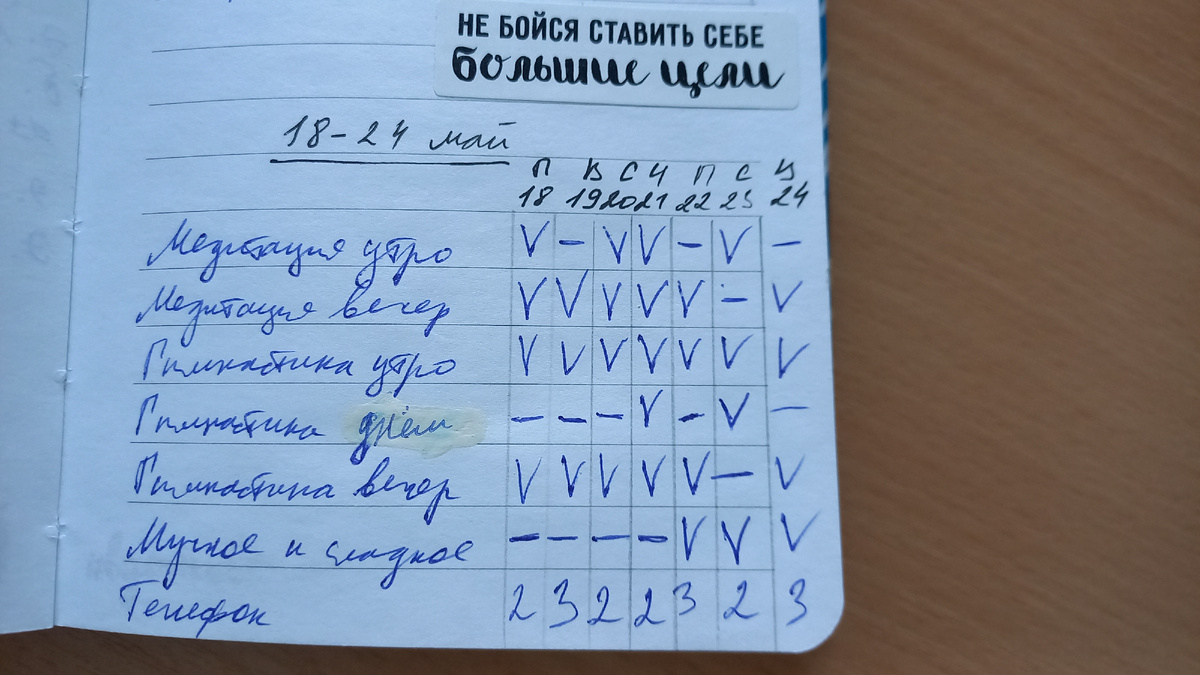 НЕ БОЙСЯ СТАВИТЬ СЕБЕ
большие цели
18-24 май
П В С Ч П С В
18 19 20 21 22 23 24
Медитация утро V – V V – V –
Медитация вечер V V V V V – V
Гимнастика утро V V V V V V V
Гимнастика днём – – – V – V –
Гимнастика вечер V V V V V – V
Мучное и сладкое – – – – V V V
Телефон 2 3 2 2 3 2 3